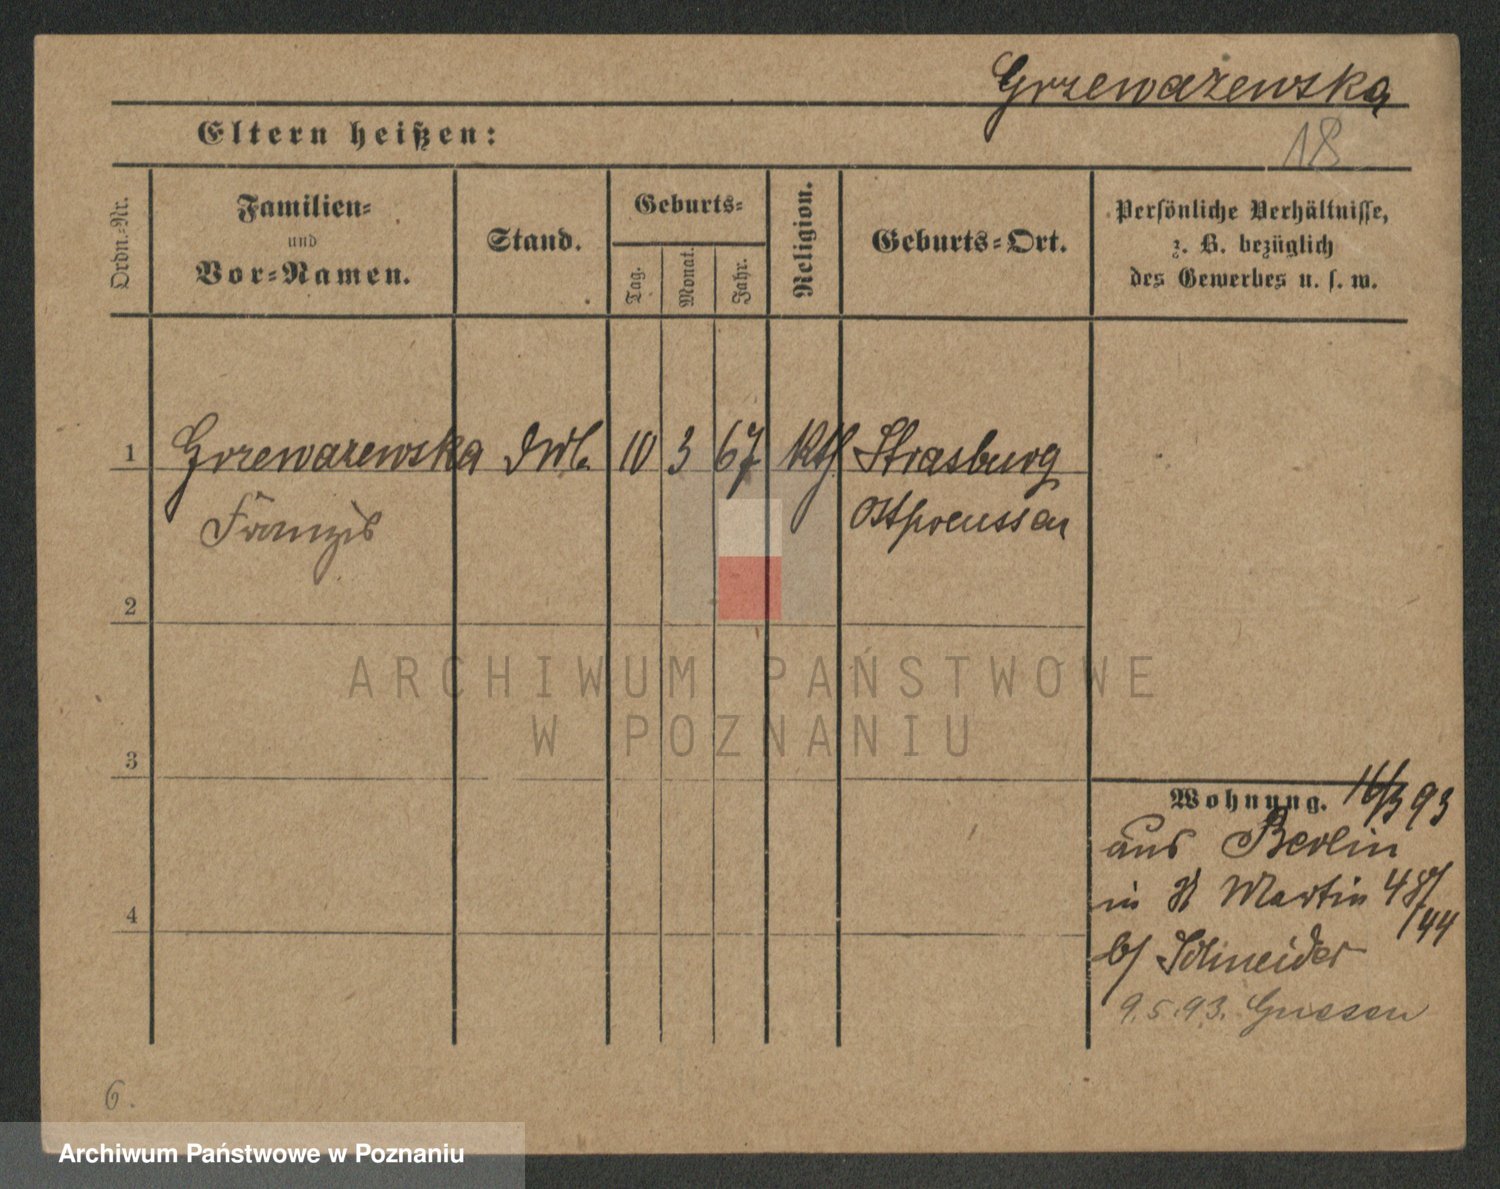 Grzeważewska
18
Eltern heißen:
Ordn.-Nr.
Familien-
und
Vor-Namen.
Stand.
Geburts-
Tag.
Monat.
Jahr.
Religion.
Geburts-Ort.
Persönliche Verhältnisse,
z. B. bezüglich
des Gewerbes u. s. w.
1 Grzewazewska 10 3 67 kth Strasburg
Franzis Ostpreussen
2
3
4
ARCHIWUM PAŃSTWOWE
W POZNANIU
Wohnung. 16/3 93
aus Berlin
in St Martin 48/
/44
b/ Schneider
9.5.93. Gnesen
6.
Archiwum Państwowe w Poznaniu